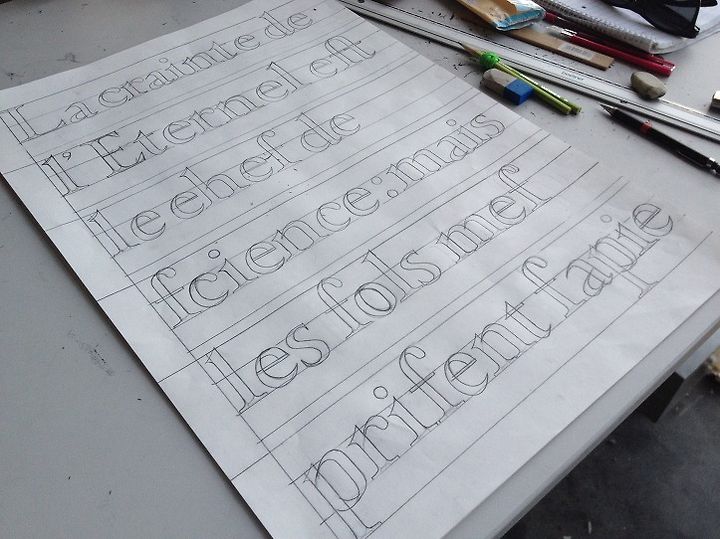 La crainte de
l'Eternel eſt
le chef de
ſcience: mais
les fols meſ
priſent ſapie